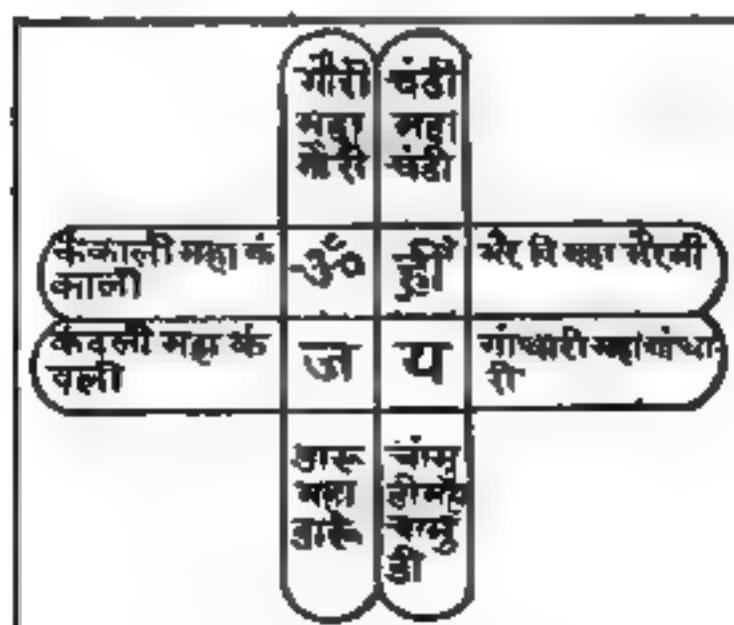 गौरी
महा
गौरी
चंडी
महा
चंडी
कंकाली महा कं
काली
ॐ
ह्रीं
भैरवि महा भैरवी
केवली महा के
वली
ज
य
गांधारी महागांधा-
री
महा
चांमु
डी महा
चामुं
डी